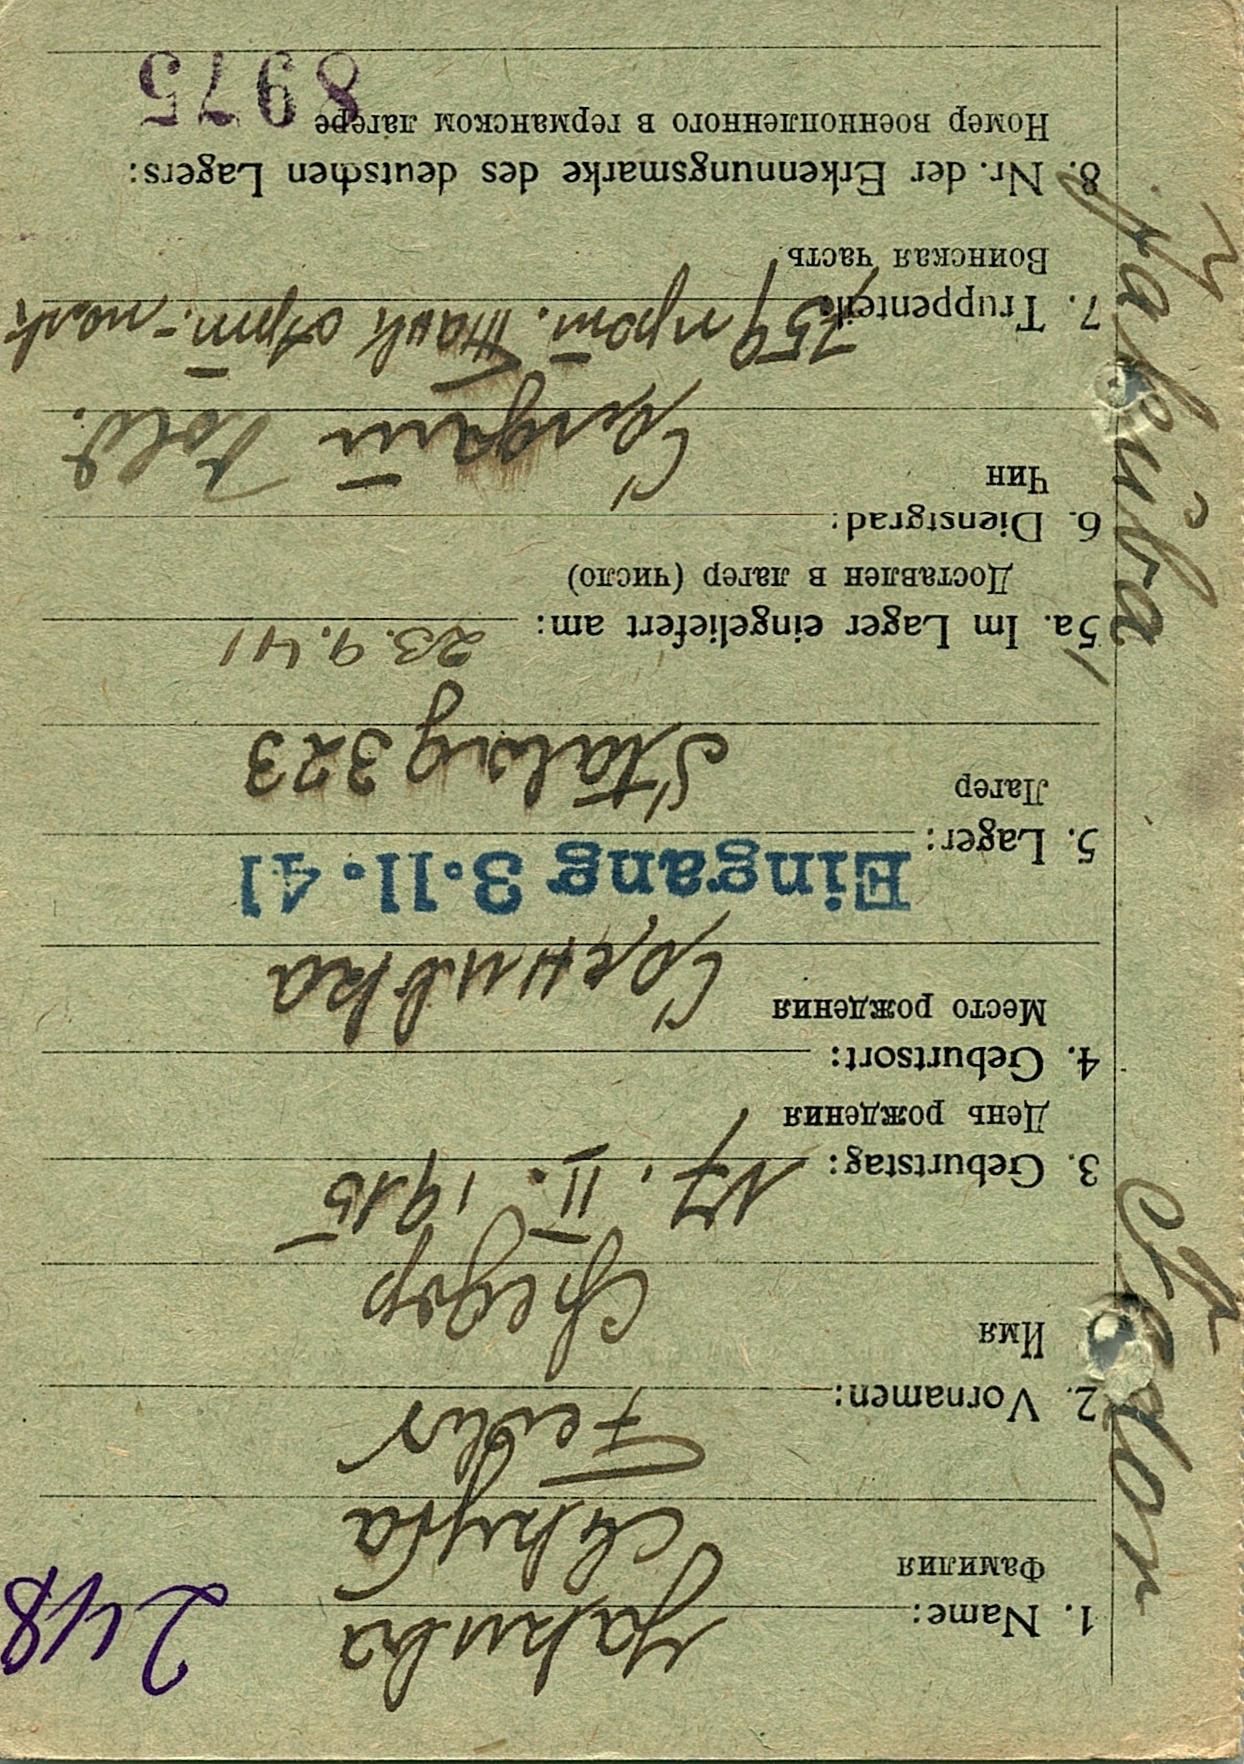 248
1. Name: Jakuba
Фамилия Якуба
Fedor
2. Vornamen:
Имя Федор
3. Geburtstag: 17. II. 1915
День рождения
4. Geburtsort:
Место рождения
Eingang 3.11.41
5. Lager:
Лагер Stalag 323
5a. Im Lager eingeliefert am: 23.9.41
Доставлен в лагер (число)
6. Dienstgrad:
Чин Sold.
7. Truppenteil: 759
Воинская часть
8. Nr. der Erkennungsmarke des deutschen Lagers:
Номер военнопленного в германском лагере 8975
Jakuba Fedor